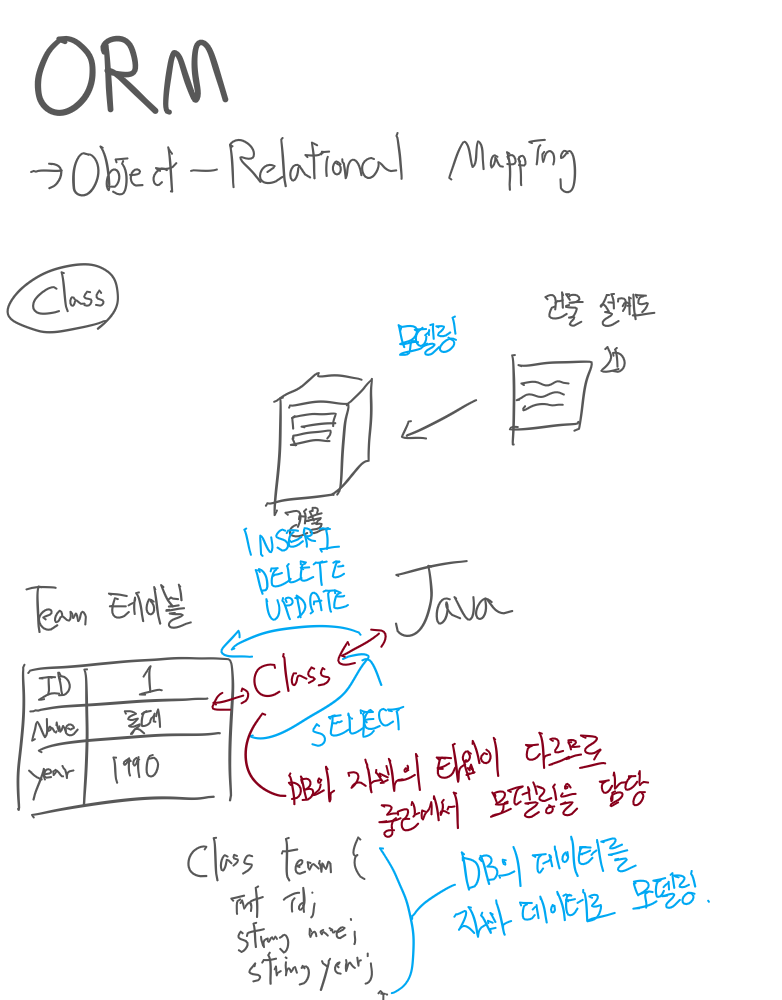 ORM
→ Object - Relational Mapping
Class
모델링
건물 설계도
2D
건물
INSERT
DELETE
UPDATE
Team 테이블
Java
ID 1
Class
Name 롯데
SELECT
year 1990
DB와 자바의 타입이 다르므로
중간에서 모델링을 담당
Class team {
int id;
string name;
string year;
}
DB의 데이터를
자바 데이터로 모델링.